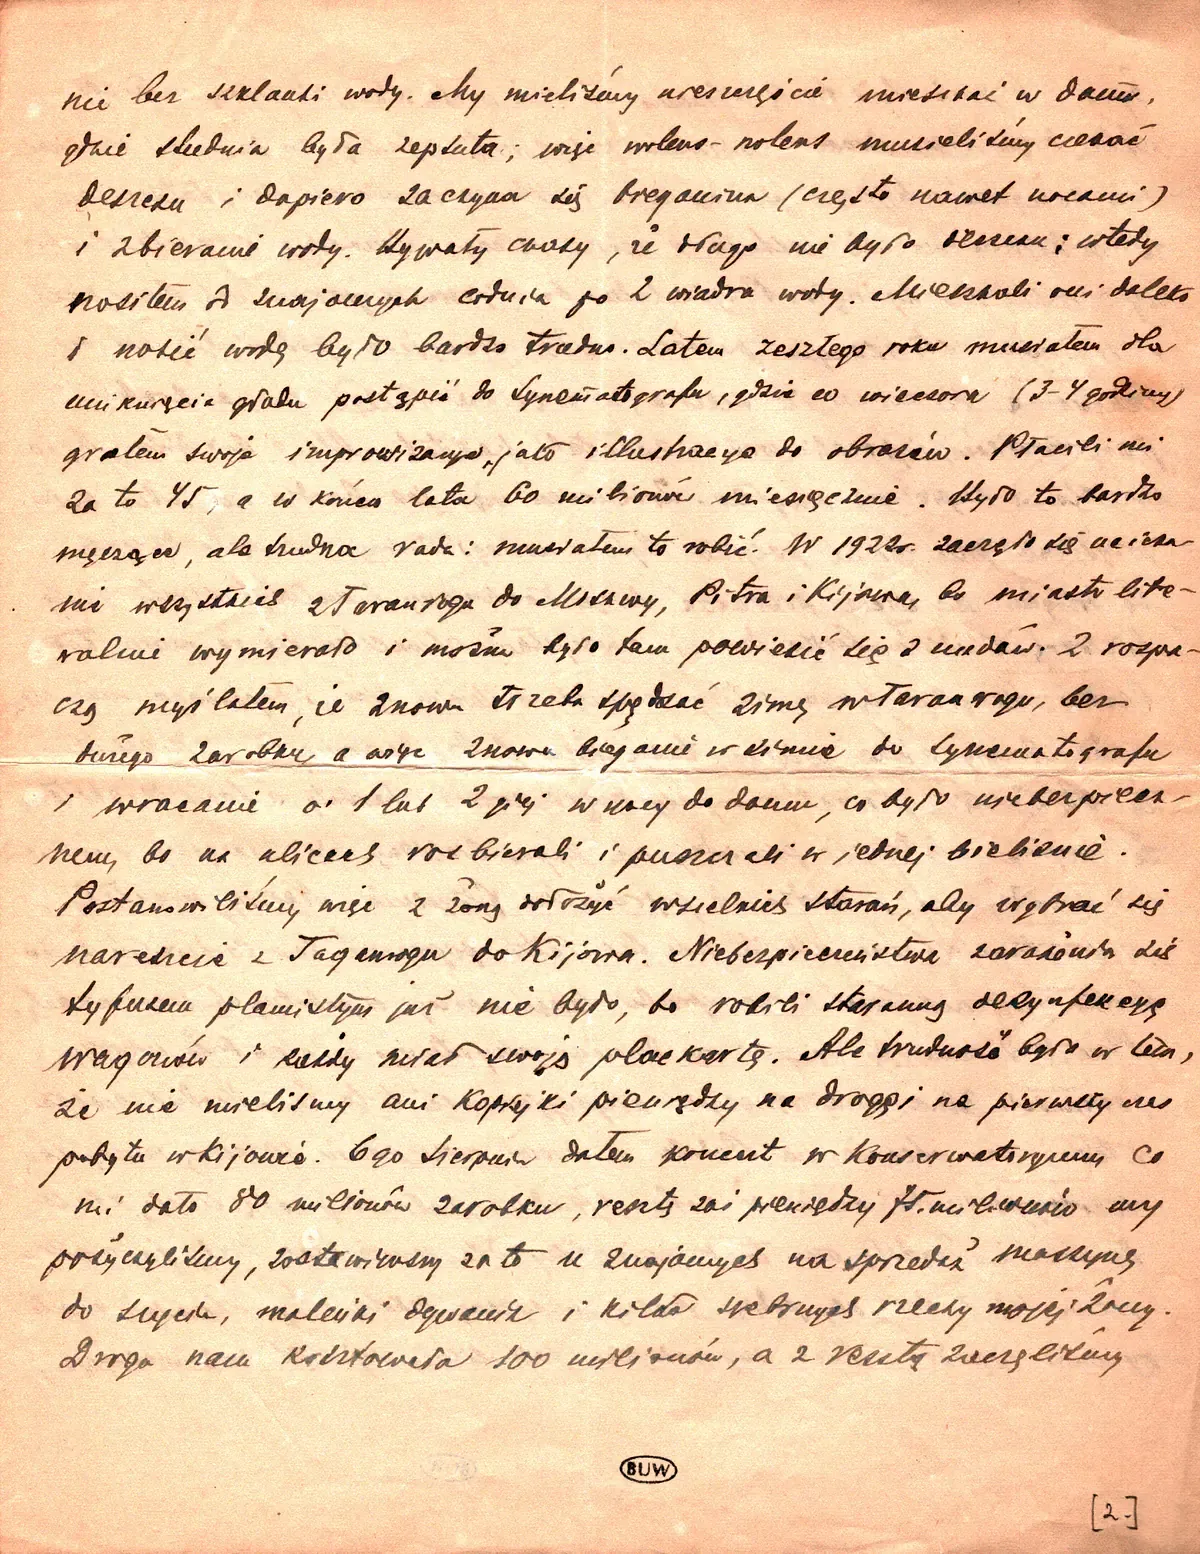 nie bez szklanki wody. My mieliśmy nieszczęście mieszkać w domu,
gdzie studnia była zepsuta; więc wolens-nolens musieliśmy czekać
deszczu i dopiero zaczyna się bieganina (często nawet nocami)
i zbieranie wody. Bywały czasy, że długo nie było deszczu; wtedy
nosiłem od znajomych codnia po 2 wiadra wody. Mieszkali oni daleko
i nosić wodę było bardzo trudno. Latem zeszłego roku musiałem dla
uniknięcia głodu postąpić do synematografu, gdzie co wieczora (3-4 godziny)
grałem swoje improwizacye, jako illustracye do obrazów. Płacili mi
za to 45, a w końcu lata 60 milionów miesięcznie. Było to bardzo
męczące, ale trudna rada: musiałem to robić. W 1922r. zaczęło się ucieka-
nie wszystkich z Taganrogu do Moskwy, Pitra i Kijowa, bo miasto lite-
ralnie wymierało i można było tam powiesić się z nudów. Z rozpa-
czą myślałem, że znowu trzeba spędzać zimę w Taganrogu, bez
dużego zarobku, a więc znowu bieganie w zimie do synematografu
i wracanie o 1 lub 2 giej w nocy do domu, co było niebezpiecz-
nem, bo na ulicach rozbierali i puszczali w jednej bieliznie.
Postanowiliśmy więc z żoną dołożyć wszelkich starań, aby wybrać się
nareszcie z Taganrogu do Kijowa. Niebezpieczeństwa zarażenia się
tyfusem plamistym już nie było, bo robili staranną dezynfekcyę
wagonów i każdy miał swoją plackartę. Ale trudność była w tem,
że nie mieliśmy ani kopiejki pieniędzy na drogę i na pierwszy czas
pobytu w Kijowie. 6go Sierpnia dałem koncert w Konserwatoryum co
mi dało 80 milionów zarobku, resztę zaś pieniędzy 75 milionów my
pożyczyliśmy, zostawiwszy za to u znajomych na sprzedaż maszynę
do szycia, maleńki dywanik i kilka srebrnych rzeczy mojej żony.
Droga nam kosztowała 100 milionów, a z resztą zaczęliśmy
BUW
[2.]